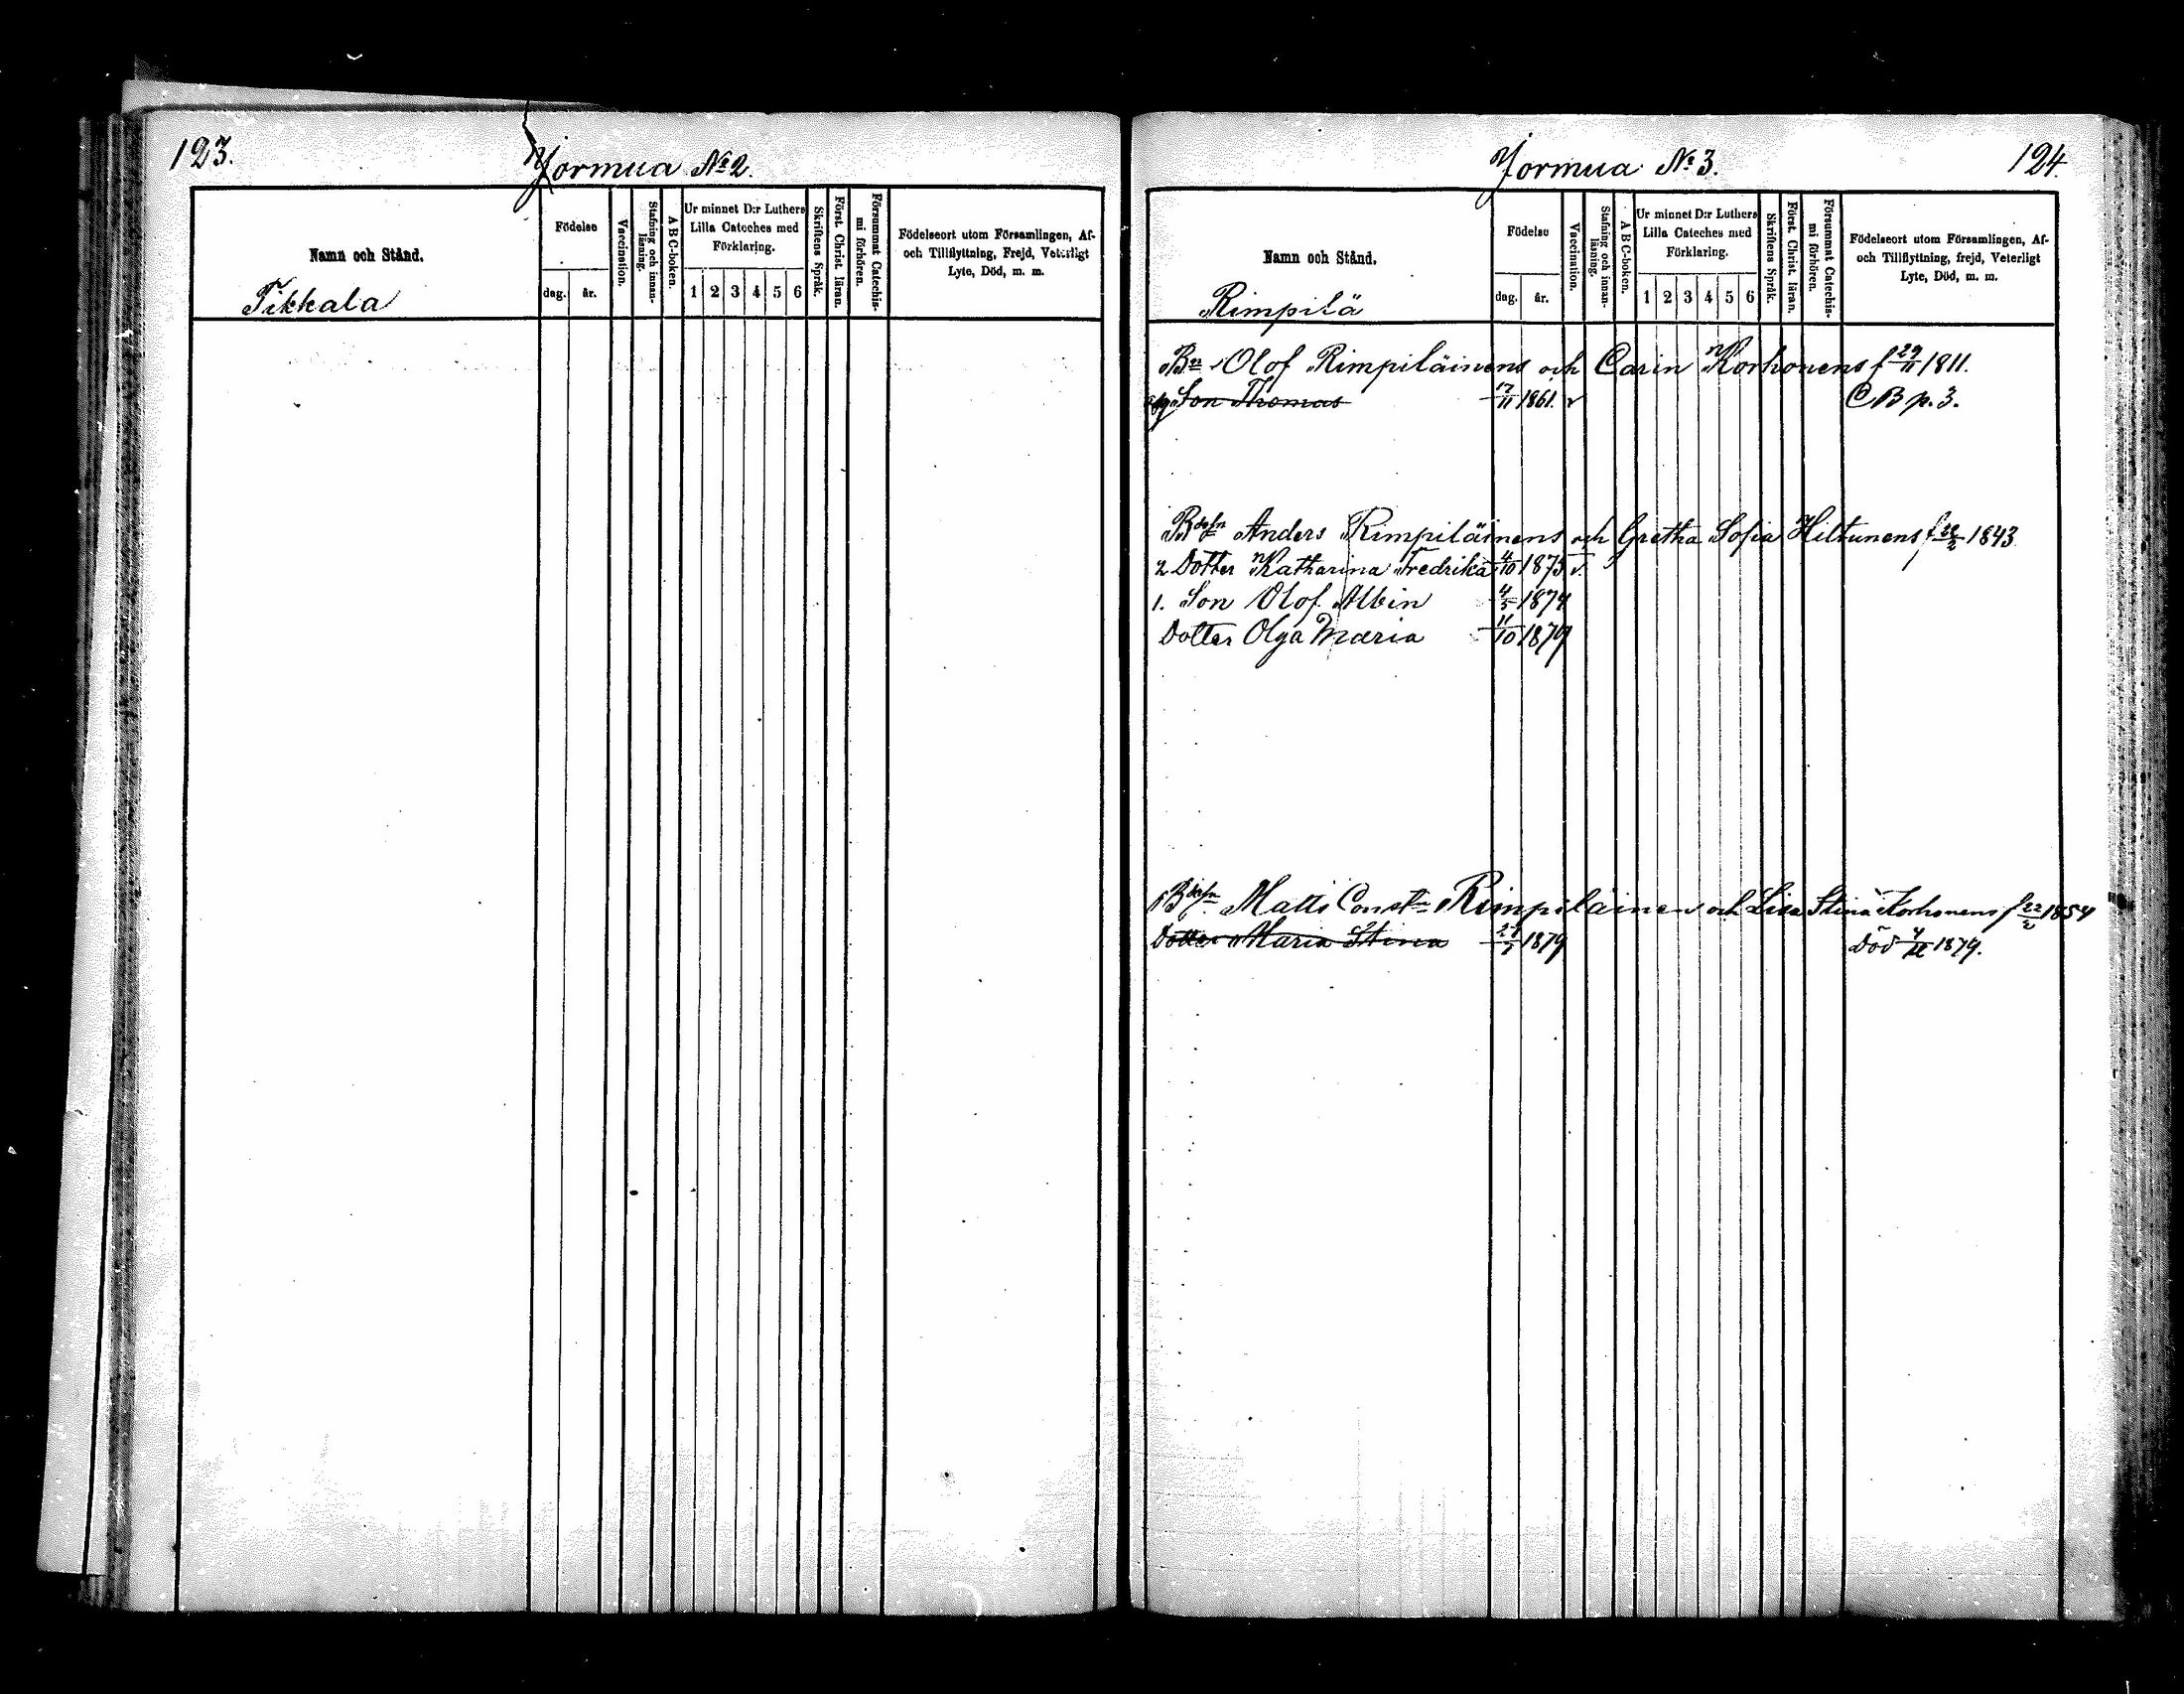 123.
Jormua No 2.
Namn och Stånd.
Tikkala
Födelse
dag.
år.
Vaccination.
Stafning och innan-
läsning.
A B C-boken.
Ur minnet D:r Luthers
Lilla Cateches med
Förklaring.
1 2 3 4 5 6
Skriftens Språk.
Först. Christ. läran.
Försummat Catechis-
mi förhören.
Födelseort utom Församlingen, Af-
och Tillflyttning, Frejd, Veterligt
Lyte, Död, m. m.
Jormua No 3.
124.
Namn och Stånd.
Rimpilä
Födelse
dag.
år.
Vaccination.
Stafning och innan-
läsning.
A B C-boken.
Ur minnet D:r Luthers
Lilla Cateches med
Förklaring.
1 2 3 4 5 6
Skriftens Språk.
Först. Christ. läran.
Försummat Catechis-
mi förhören.
Födelseort utom Församlingen, Af-
och Tillflyttning, frejd, Veterligt
Lyte, Död, m. m.
Bn Olof Rimpiläinens och Carin Korhonens f 29/11 1811.
Son Thomas 17/11 1861. v C B p. 3.
Bdesn Anders Rimpiläinens och Gretha Sofia Hiltunens f 1843
2 Dotter Katharina Fredrika 4/10 1875 v.
1. Son Olof Albin 4/5 1874
Dotter Olga Maria 11/10 1879
Bdesn Matts Constn Rimpiläinen och Lisa Stina Korhonens f 22/2 1854
Dotter Maria Stina 1879 Död 1879.